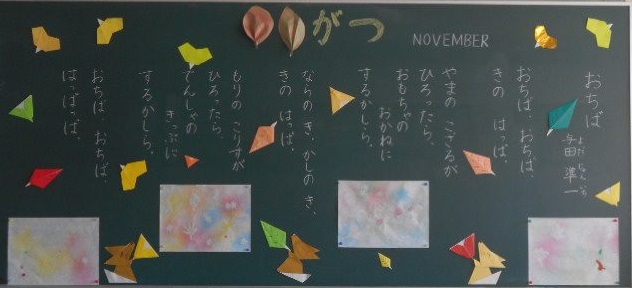 がつ
NOVEMBER
おちば
与田 準一
よだ じゅんいち
おちば おちば、
きの はっぱ。
やまの こざるが
ひろったら、
おもちゃの
おかねに
するかしら。
ならの き、かしの き、
きの はっぱ。
もりの こりすが
ひろったら、
でんしゃの
きっぷに
するかしら。
おちば おちば、
はっぱっぱ。